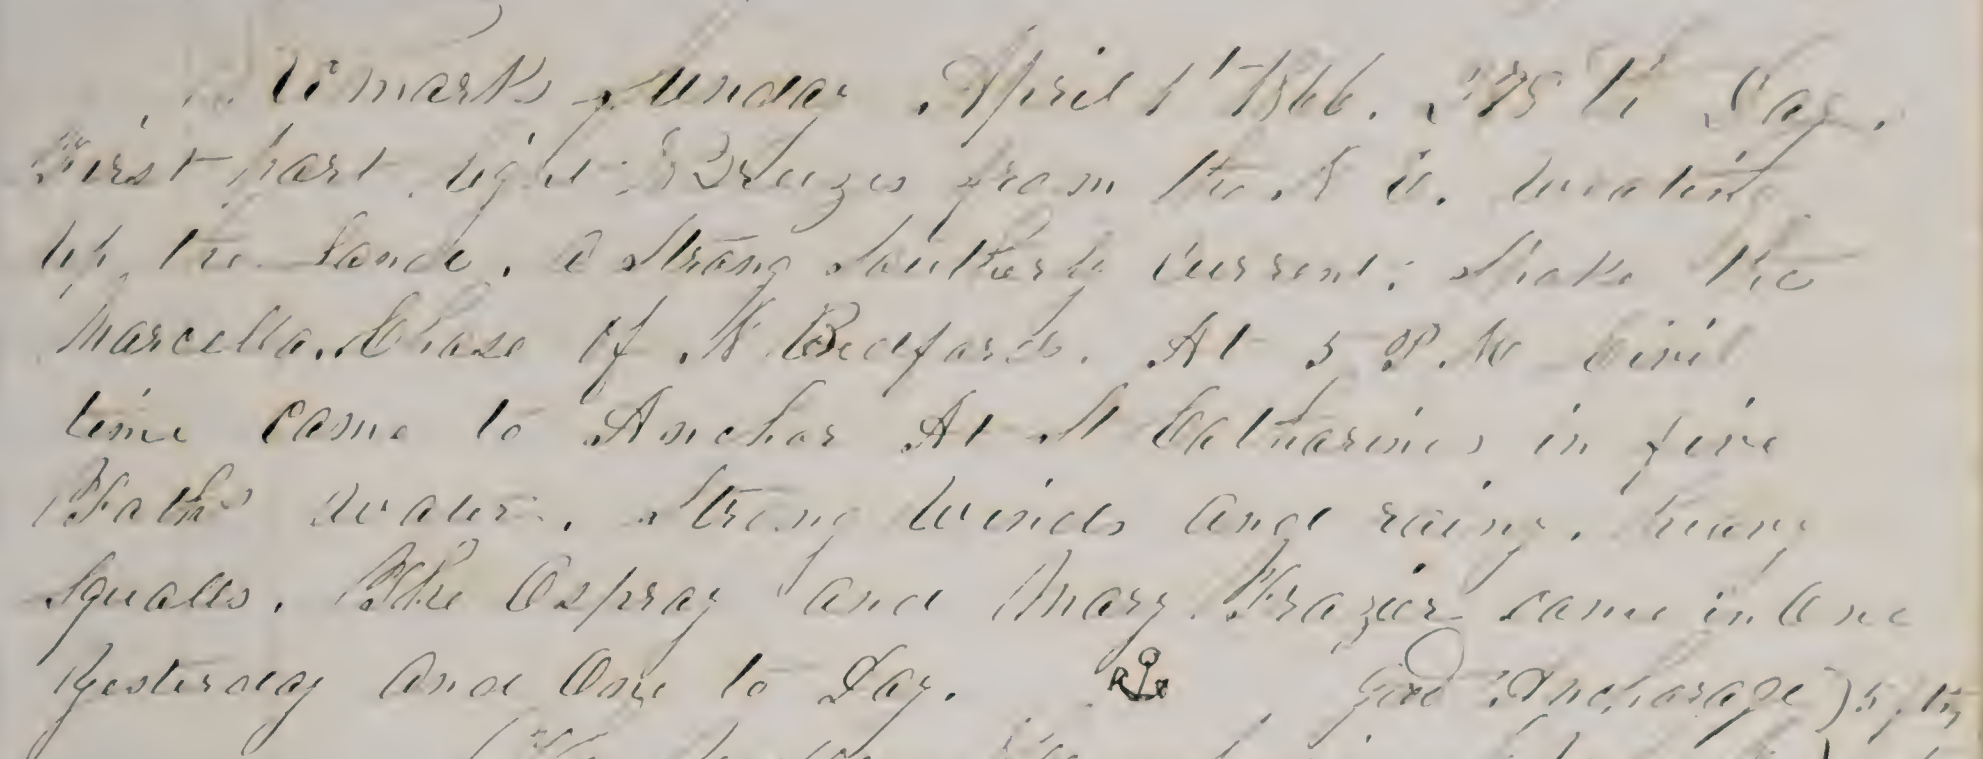 Remarks Sunday April 1st 1866. Day.
First part light Breezes from the N E. beating
up the Land. A Strong Southerly Current; Spoke the
Marcella. Chase of N. Bedford. At 5 P.M Civil
time came to Anchor At St Catharines in five
Fath water. Strong Winds and rainy. heavy
Squalls. The Ospray and Mary Frazier came in One
Yesterday And One to Day. Good Anchorage